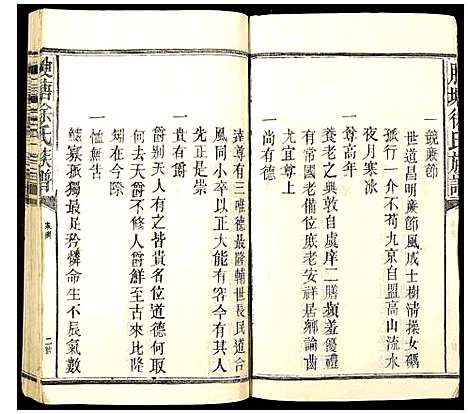 一競廉節
世道昌明廉節風成士樹清操女礪
孤行一介不苟九京自盟高山流水
夜月寒冰
一養高年
養老之典敦自虞庠二膳頻羞優禮
有加周國老備位庶老安祥居鄉論齒
尤宜尊上
一尚有德
達尊有三唯德最隆輔世長民道合
風同小卒以正大能有容有其人
先正是崇
一貴有爵
爵別天人有之皆貴名位道德何取
何去天爵不修人爵鮮至古來比比
矧在今際
一恤無告
鰥寡孤獨最足矜憐命生不辰氣數
雙塘徐氏族譜
家南